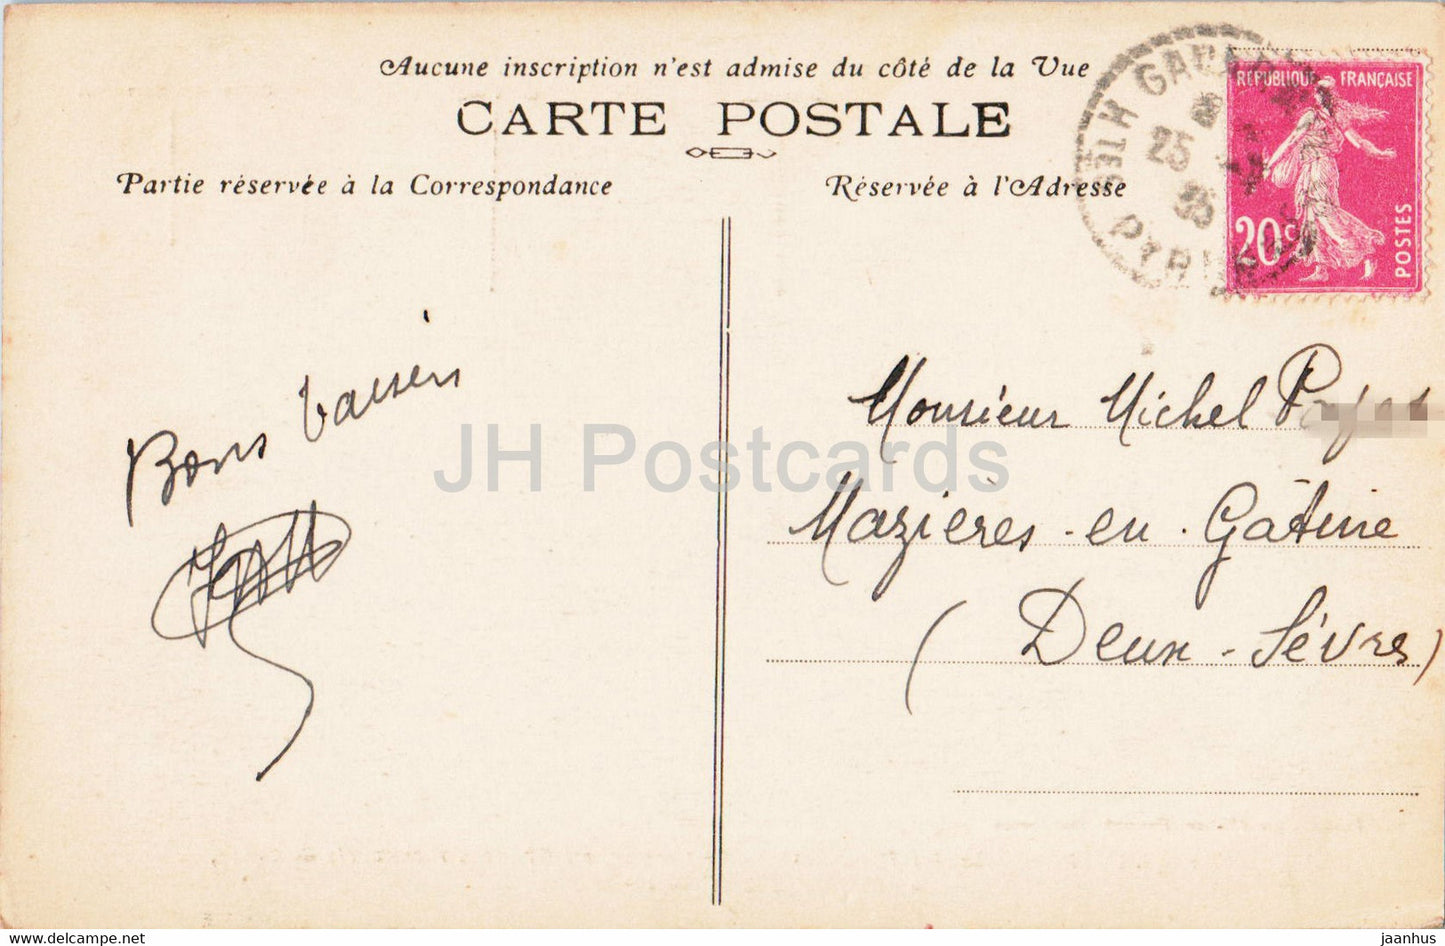 Aucune inscription n'est admise du côté de la Vue
CARTE POSTALE
Partie réservée à la Correspondance
Réservée à l'Adresse
RÉPUBLIQUE FRANÇAISE
20c
POSTES
25
35
HTES PYR
Bons baisers
Monsieur Michel
Mazières-en-Gâtine
(Deux-Sèvres)
JH Postcards
www.delcampe.net
jaanhus